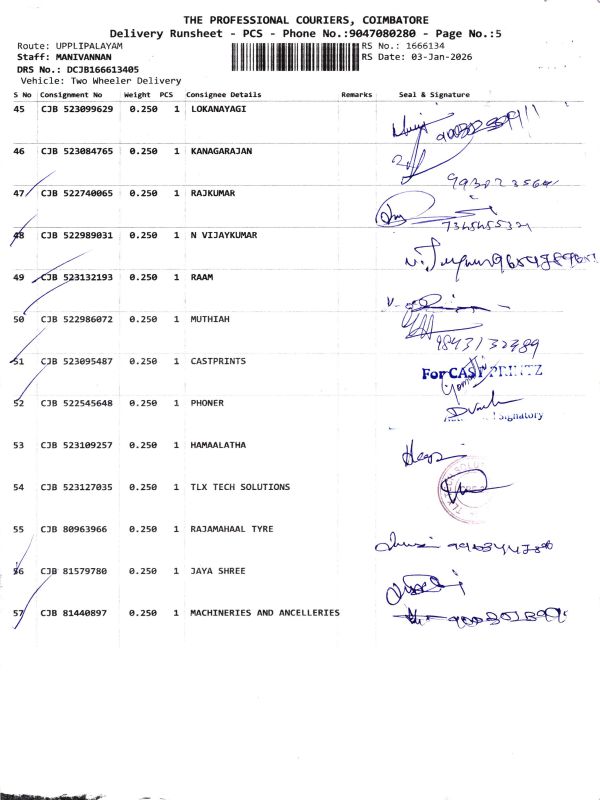 THE PROFESSIONAL COURIERS, COIMBATORE
Delivery Runsheet - PCS - Phone No.:9047080280 - Page No.:5
Route: UPPLIPALAYAM RS No.: 1666134
Staff: MANIVANNAN RS Date: 03-Jan-2026
DRS No.: DCJB166613405
Vehicle: Two Wheeler Delivery
S No Consignment No Weight PCS Consignee Details Remarks Seal & Signature
45 CJB 523099629 0.250 1 LOKANAYAGI
46 CJB 523084765 0.250 1 KANAGARAJAN
47 CJB 522740065 0.250 1 RAJKUMAR
7345455321
48 CJB 522989031 0.250 1 N VIJAYKUMAR
49 CJB 523132193 0.250 1 RAAM
50 CJB 522986072 0.250 1 MUTHIAH
9843132989
51 CJB 523095487 0.250 1 CASTPRINTS
For CAST PRINTZ
52 CJB 522545648 0.250 1 PHONER
Signatory
53 CJB 523109257 0.250 1 HAMAALATHA
54 CJB 523127035 0.250 1 TLX TECH SOLUTIONS
55 CJB 80963966 0.250 1 RAJAMAHAAL TYRE
56 CJB 81579780 0.250 1 JAYA SHREE
57 CJB 81440897 0.250 1 MACHINERIES AND ANCELLERIES